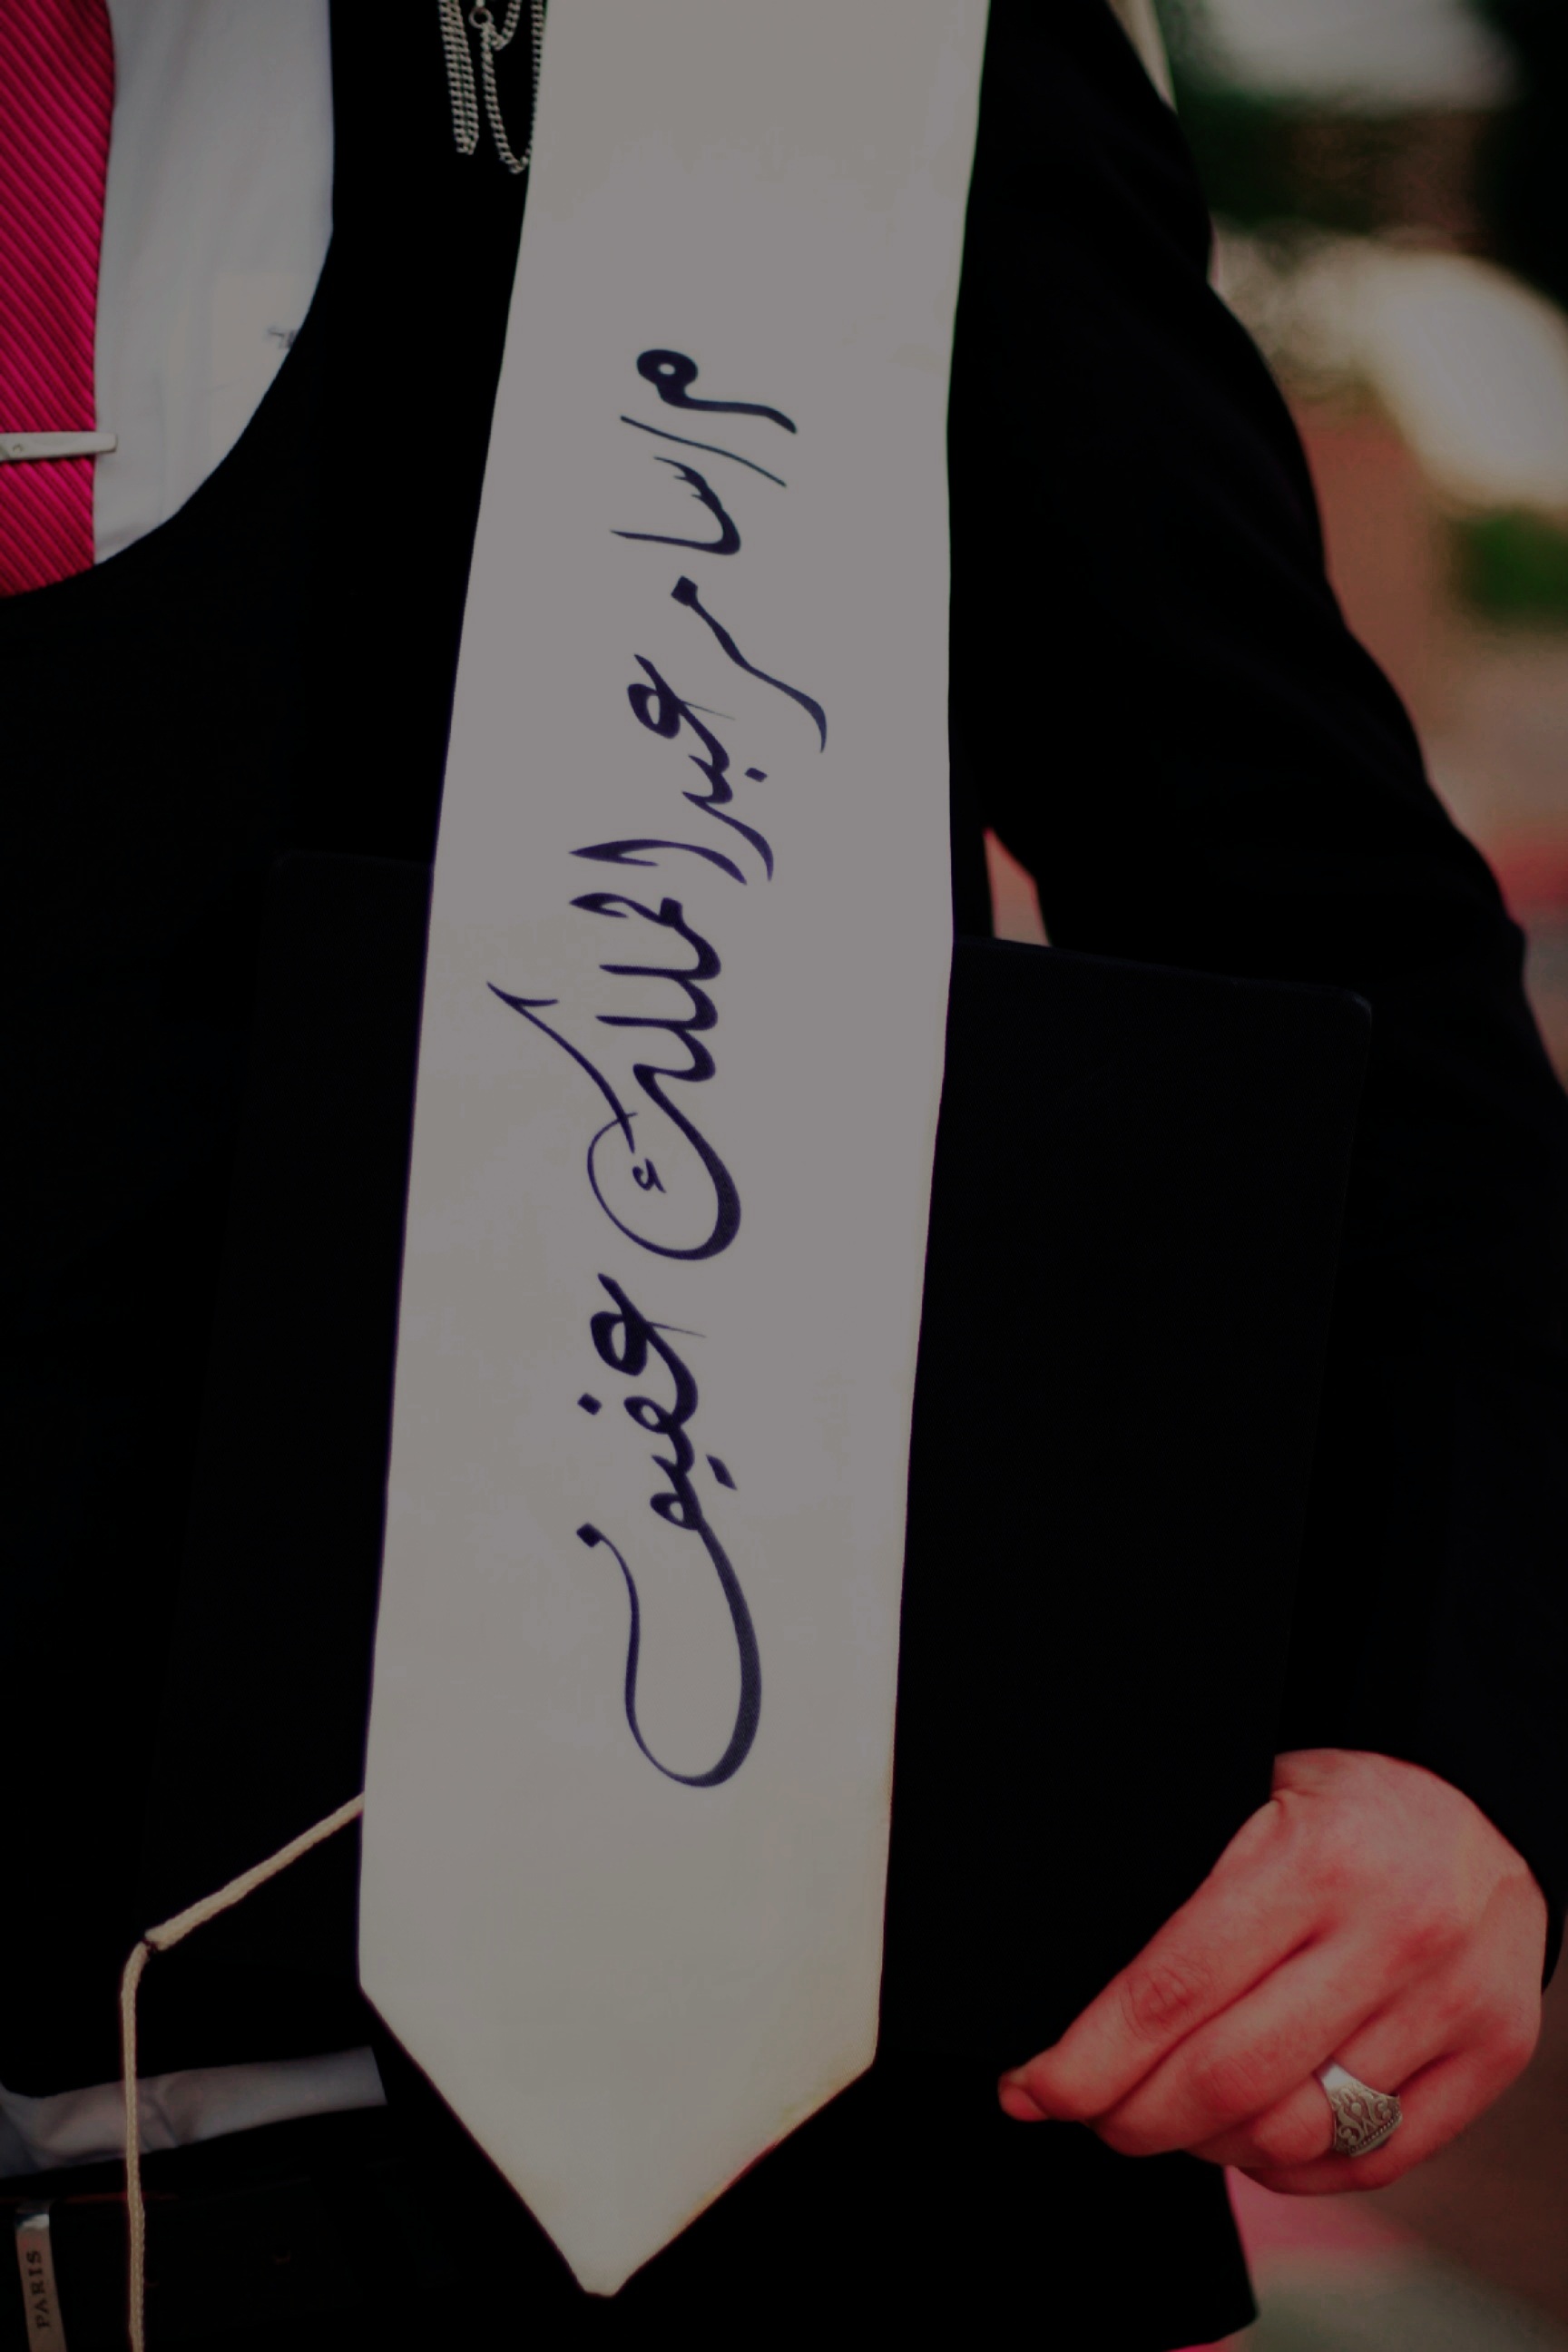 م/ سامر عبدالملك عفيف
PARIS